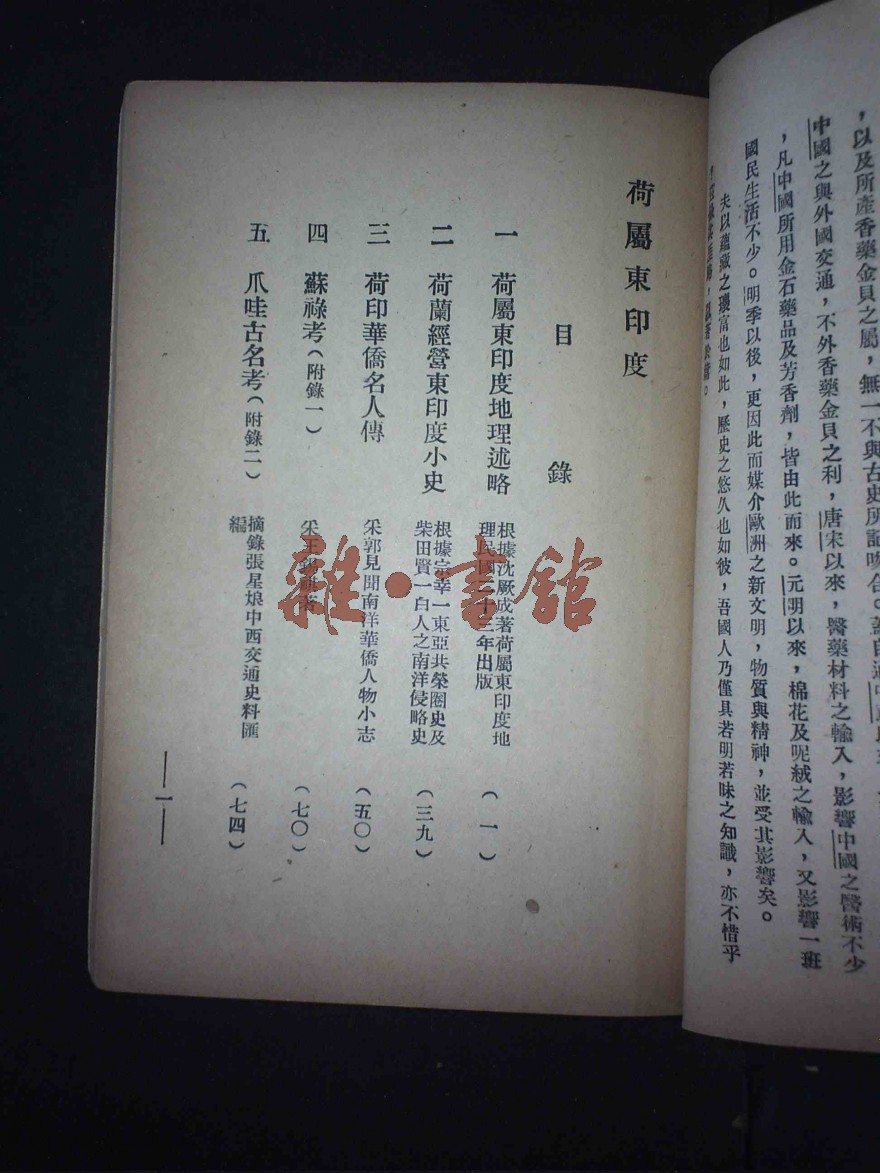 ，以及所產香藥金貝之屬，無一不與古史所記吻合。蓋自通中
中國之與外國交通，不外香藥金貝之利，唐宋以來，醫藥材料之輸入，影響中國之醫術不少
，凡中國所用金石藥品及芳香劑，皆由此而來。元明以來，棉花及呢絨之輸入，又影響一班
國民生活不少。明季以後，更因此而媒介歐洲之新文明，物質與精神，並受其影響矣。
夫以蘊藏之瓌富也如此，歷史之悠久也如彼，吾國人乃僅具若明若昧之知識，亦不惜乎
荷屬東印度
目錄
一 荷屬東印度地理述略 根據沈厥成著荷屬東印度地理民國二十三年出版 (一)
二 荷蘭經營東印度小史 根據宗幸一東亞共榮圈史及柴田賢一白人之南洋侵略史 (三九)
三 荷印華僑名人傳 采郭見聞南洋華僑人物小志 (五〇)
四 蘇祿考(附錄一) 采王 (七〇)
五 爪哇古名考(附錄二) 摘錄張星烺中西交通史料匯編 (七四)
一
雜·書館